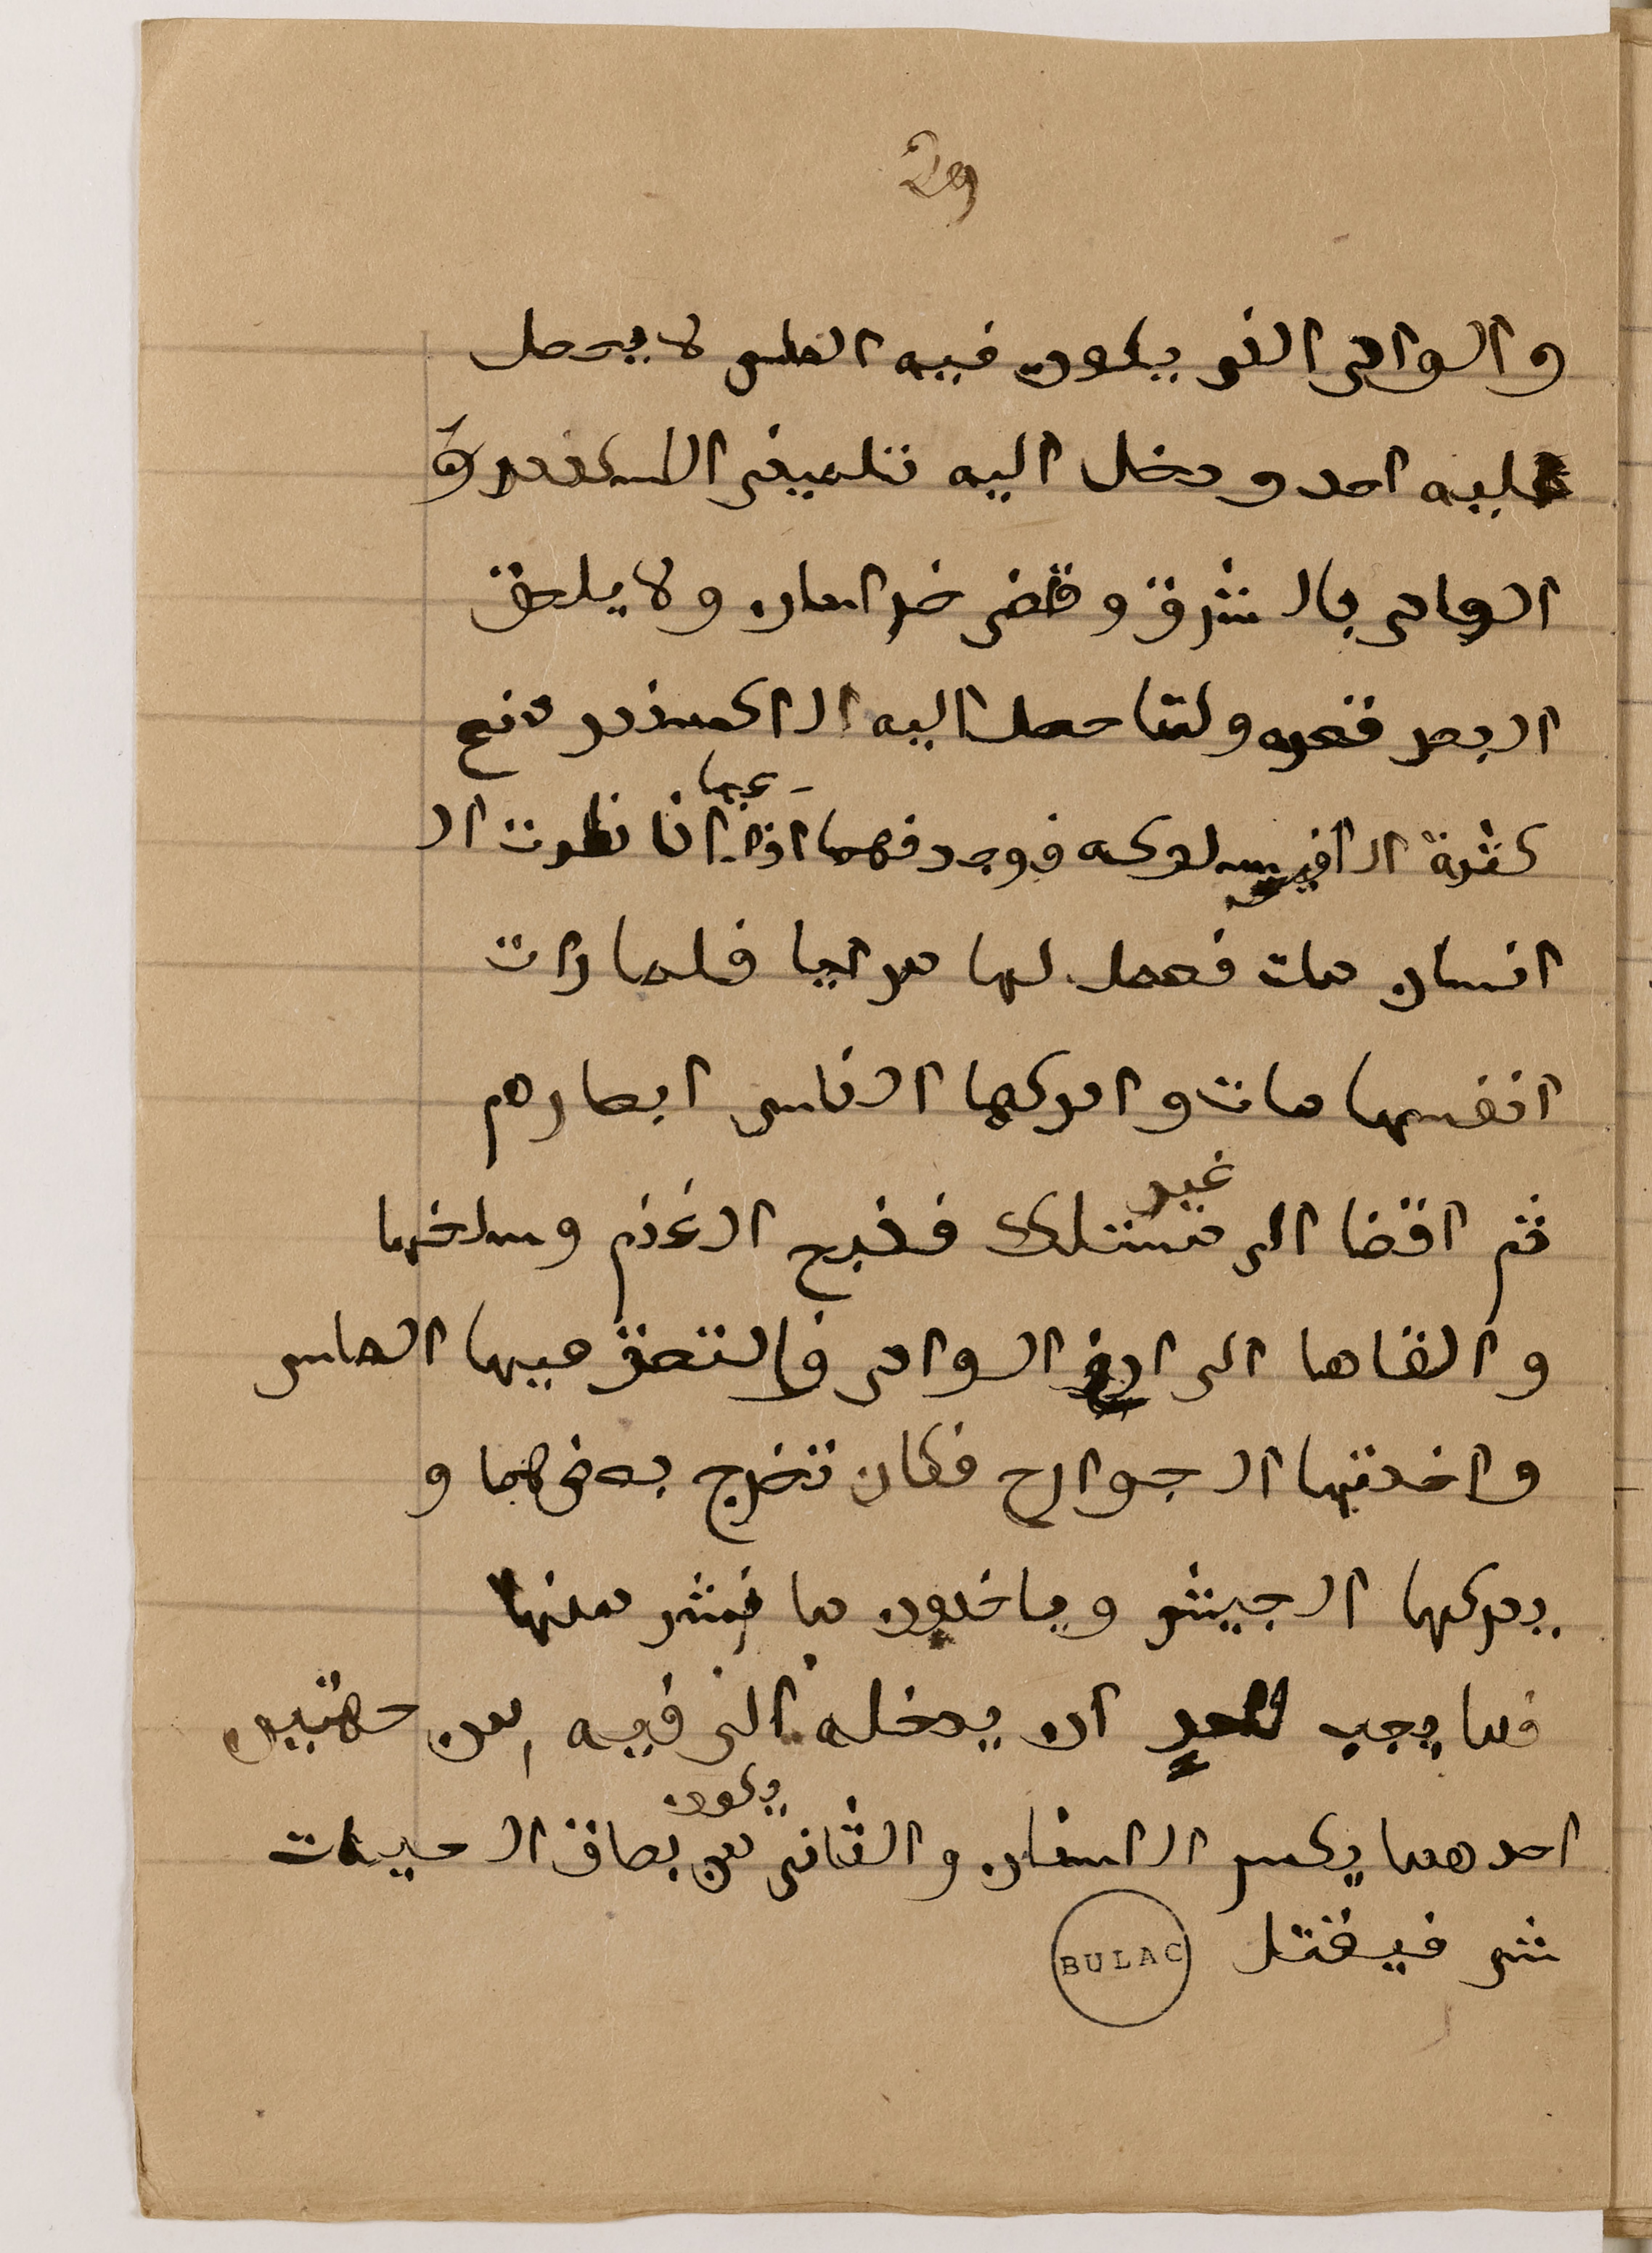 29
والوادى الذى يكون فيه الماس لا يوصل
عليه احد ودخل اليه تلميذ الاسكندر و
الوادى بالشرق وقضى خراسان ولا يلحق
البصر قعره ولما حصل اليه الاكسندر منع
كثرة الافيى سلوكه فوجد فيهما اذا انا نظرت ال
عيها
انسان مات فعمل لها مرايا فلما رات
انفسها مات وادركها الناس ابصارهم
ثم اقضا الى مستلك فذبح الغنم وسلخها
غير
والقاها الى ارض الوادى فالتصق فيها الماس
واخدتها الجوارح فكان تخرج بعضها و
يدركها الجيش وياخدون ما نشر منها
فما يجب لاحد ان يدخله الى فيه من جهتين
احدهما يكسر الاسنان والثانى من بصاق الحيات
يكون
شى فيقتل
BULAC